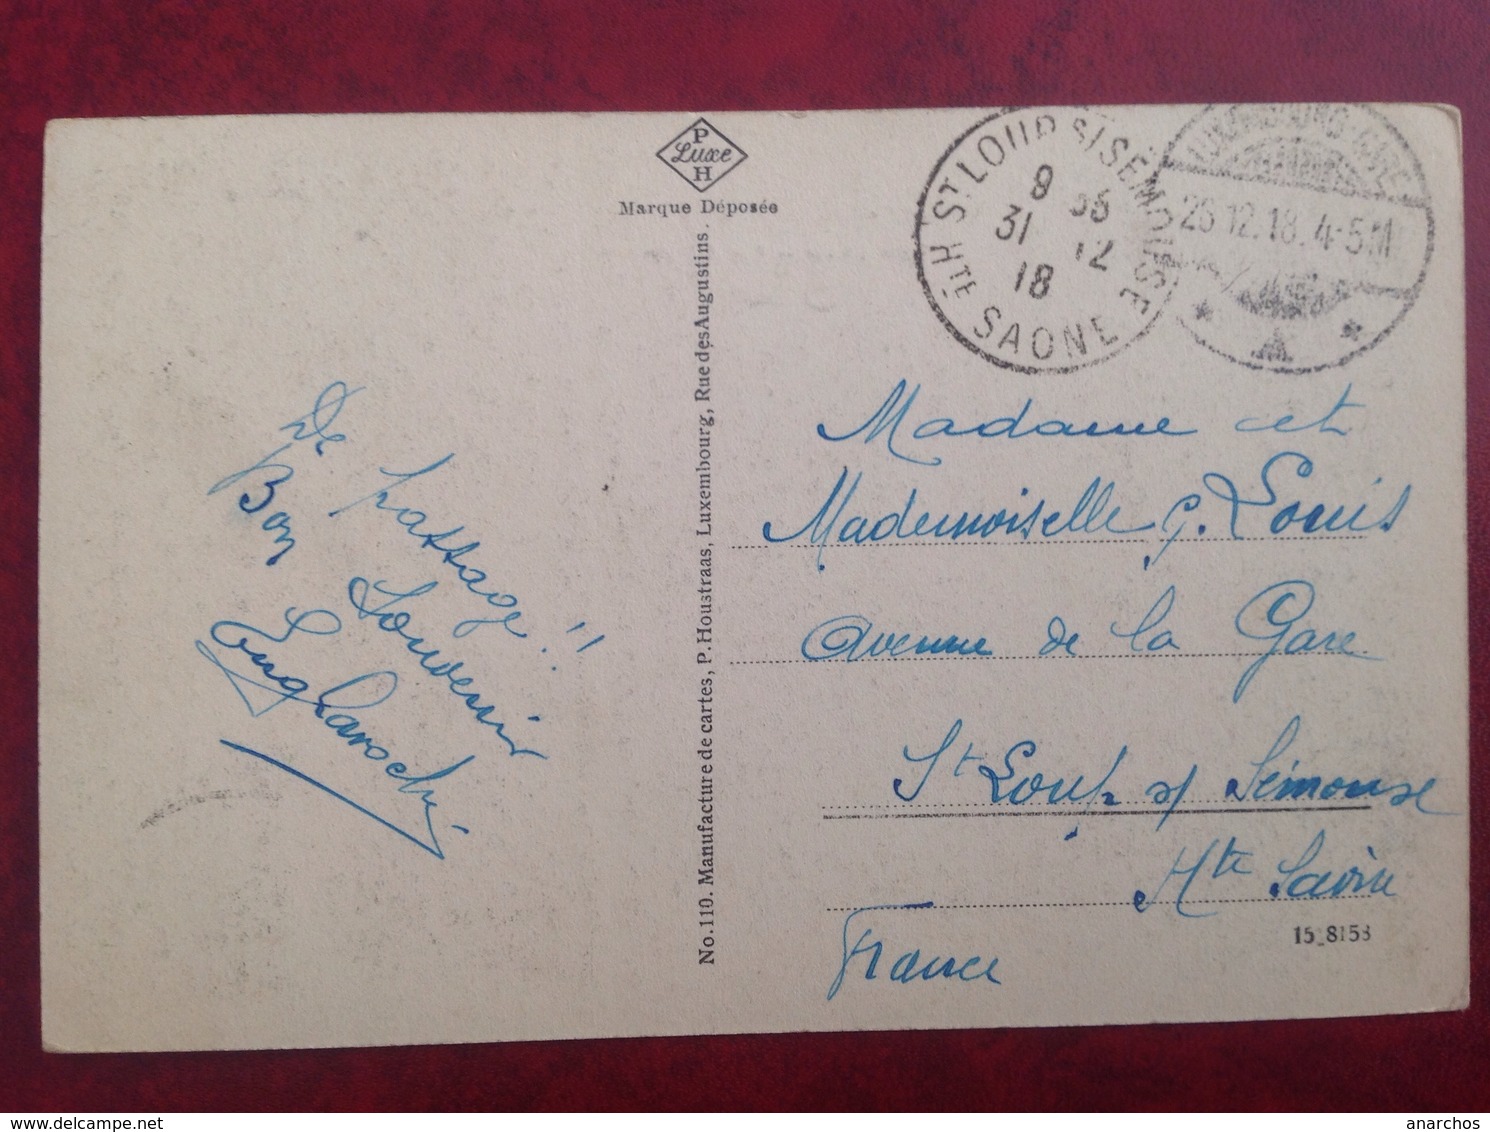 P
Luxe
H
Marque Déposée
No. 110. Manufacture de cartes, P. Houstraas, Luxembourg, Rue des Augustins.
ST LOUP S/SEMOUSE
HTE SAONE
9 35
31 12
18
LUXEMBOURG-GARE
26.12.18. 4-5M
A
De passage !!
Bon Souvenir
Madame et
Mademoiselle G. Louis
Avenue de la Gare
St Loup s/ Sémouse
Hte Saône
France
15_8153
delcampe.net
anarchos